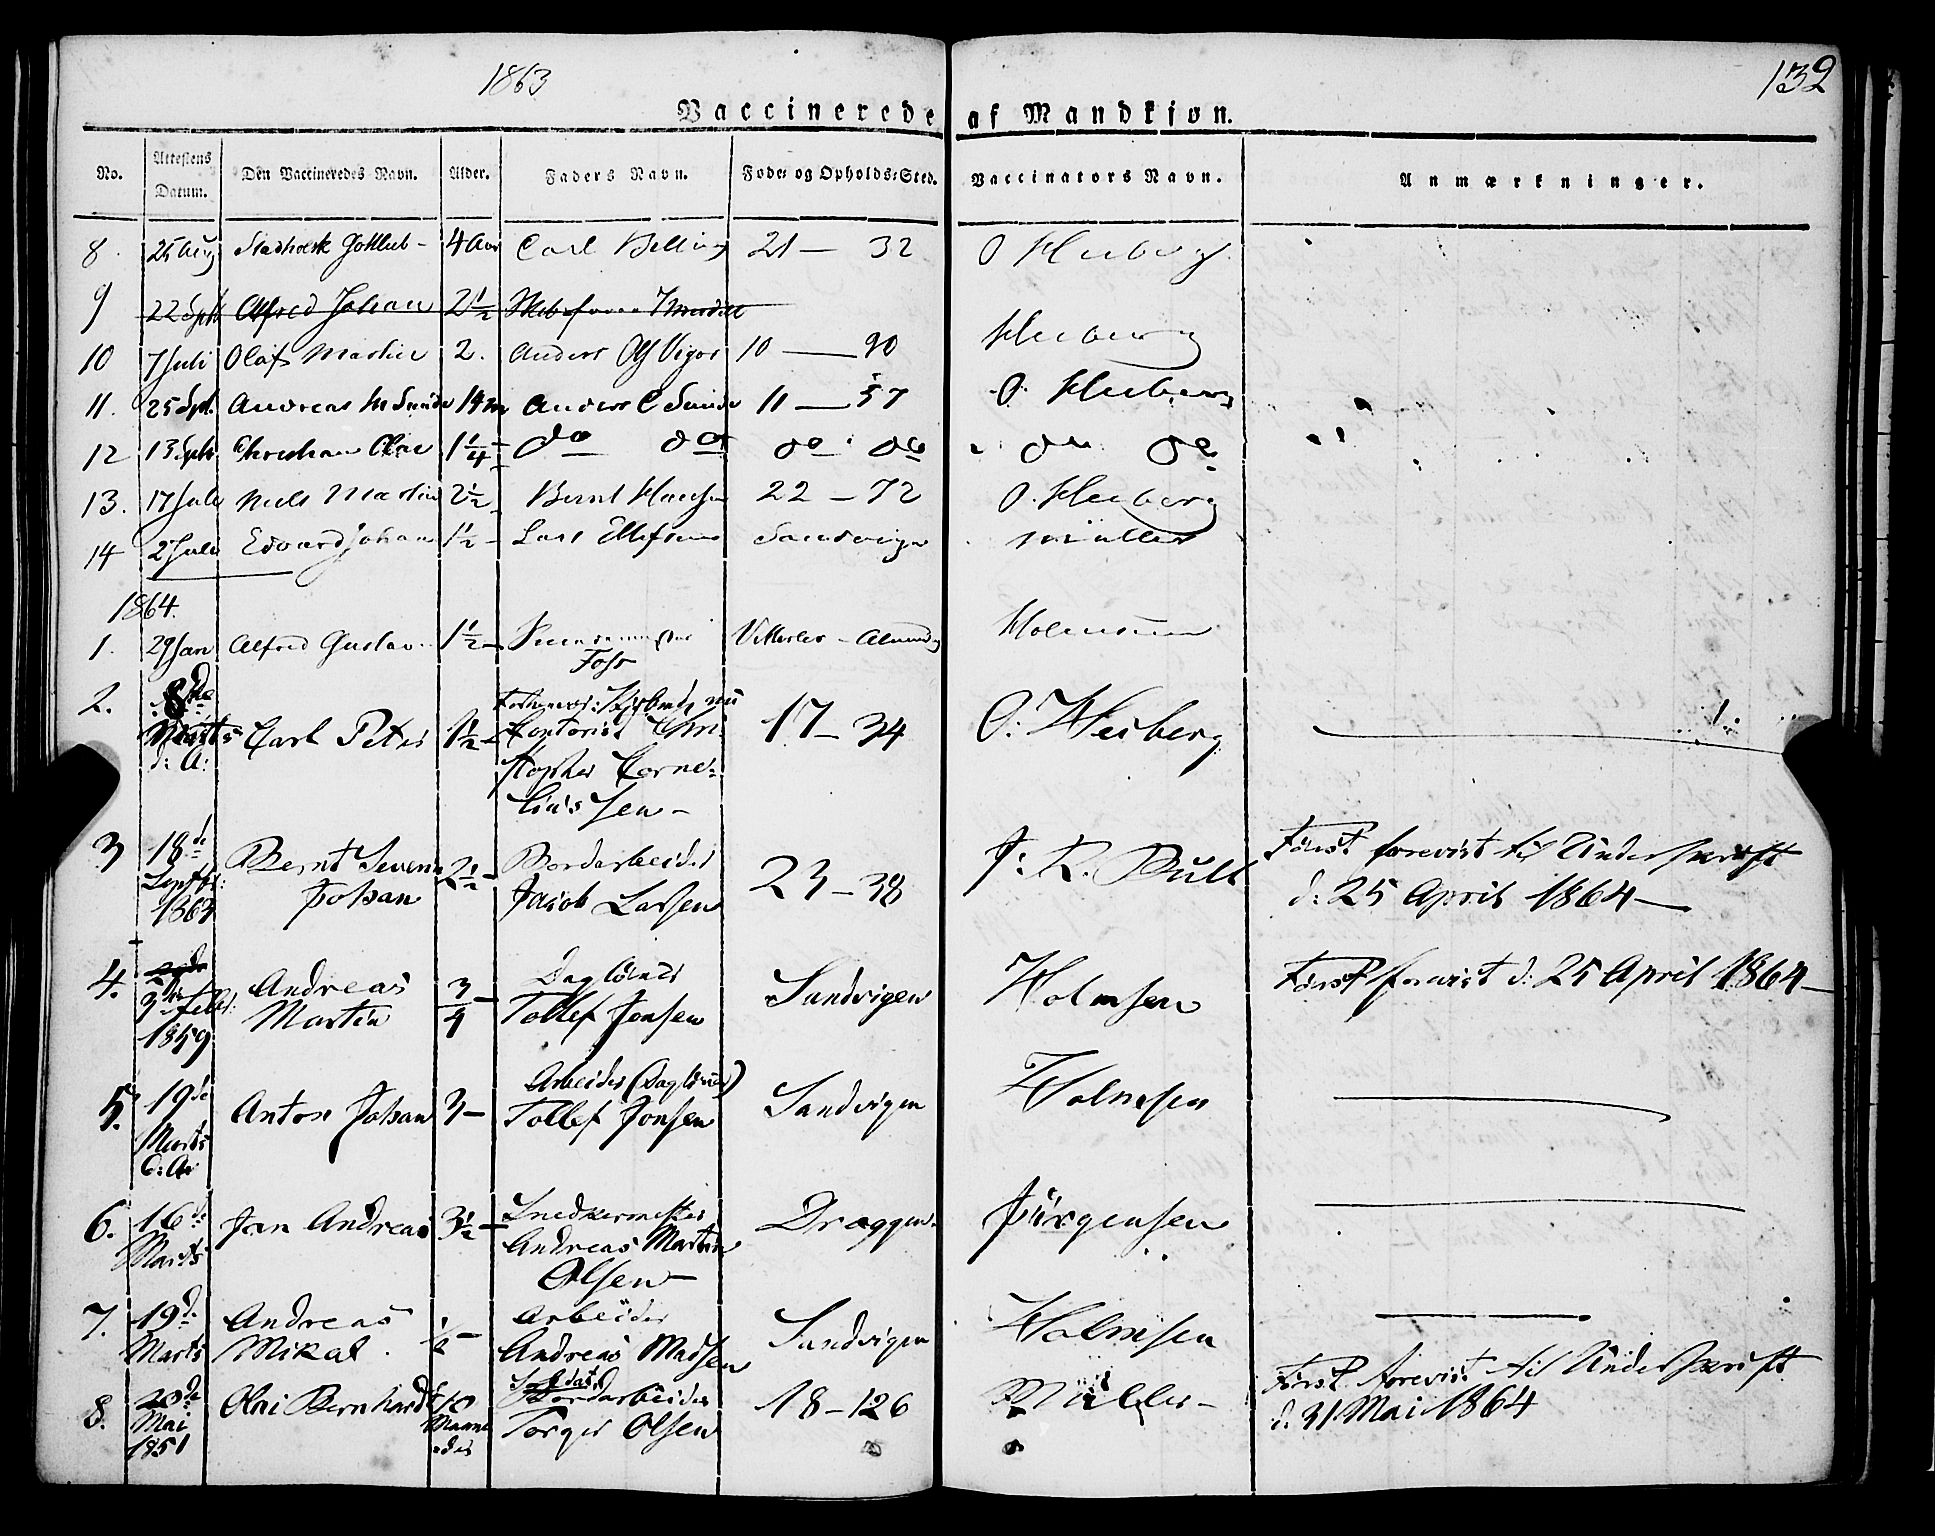 1863
132
Vaccinerede af Mandkjøn.
No. Attestens Datum. Den Vaccineredes Navn. Alder. Faders Navn. Føde- og Opholds-Sted. Vaccinators Navn. Anmærkninger.
8. 25 Aug Gottlieb - 4 Aar Carl Belling 21 — 32 O Heiberg
9 22 Sptb Alfred Johan 2 1/2 Heiberg
10 7 Juli Olaf Martin 2. Anders 10 — 90 Heiberg
11. 25 Spt. Andreas M Sunde 14 m Anders C Sunde 11 — 57 O. Heiberg
12 13 Sptb Christian Olai 1 1/4 do do do do do do
13. 17 Juli Niels Martin 2 1/2 Bernt Hansen 22 — 72 O. Heiberg
14 2 Juli Edvard Johan 1 1/2 - Lars Ellefsen Sandvigen Müller
1864.
1. 29 Jan Alfred Gustav 1 1/2 - Foss Holmsen
2. 8de Marts d: A: Carl Peter 1 1/2 - nu Contorist Chri-
stopher Corne-
liussen - 17 - 34 O: Heiberg
3 18de Septbr: 1863 Bernt Severin Johan 2 1/2 - Bordarbeider Jacob Larsen 23 - 38 J: R. Bull Først forevist til Underskrift
d: 25 April 1864 —
4. 9de Febr: 1859 Andreas Martin 3/4 - Dagløner Tollef Jonsen Sandvigen Holmsen Først forevist d: 25 April 1864 —
5. 19de Marts d: Ar Anton Johan 3 - Arbeider (Dagløner)
Tollef Jonsen Sandvigen Holmsen
6. 16de Marts Jan Andreas 3 1/2 - Snedkermester
Andreas Martin
Olsen - Dræggen Jürgensen
7. 19de Marts Andreas Mikal 1/2 - Arbeider
Andreas Madsen Sandvigen Holmsen
8. 20de Mai 1851 Olai Bernhard 10 Maane-
der Soldat
Bordarbeider
Torger Olsen 18 - 126 Müller - Først forevist til Underskrift
d: 31 Mai 1864